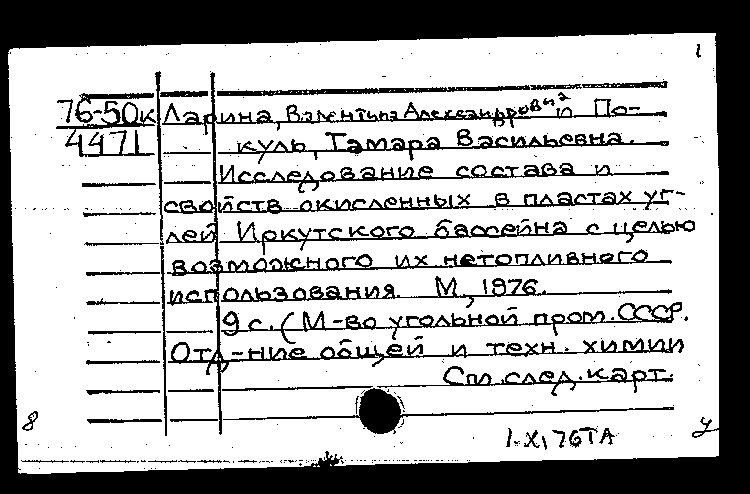 1
76-50к Ларина, Валентина Александровна и По-
4471 куль, Тамара Васильевна.
Исследование состава и
свойств окисленных в пластах уг-
лей Иркутского бассейна с целью
возможного их нетопливного
использования. М., 1976.
9 с. (М-во угольной пром. СССР.
Отд-ние общей и техн. химии
Сл. след. карт.
8
1-XI 76ТА У